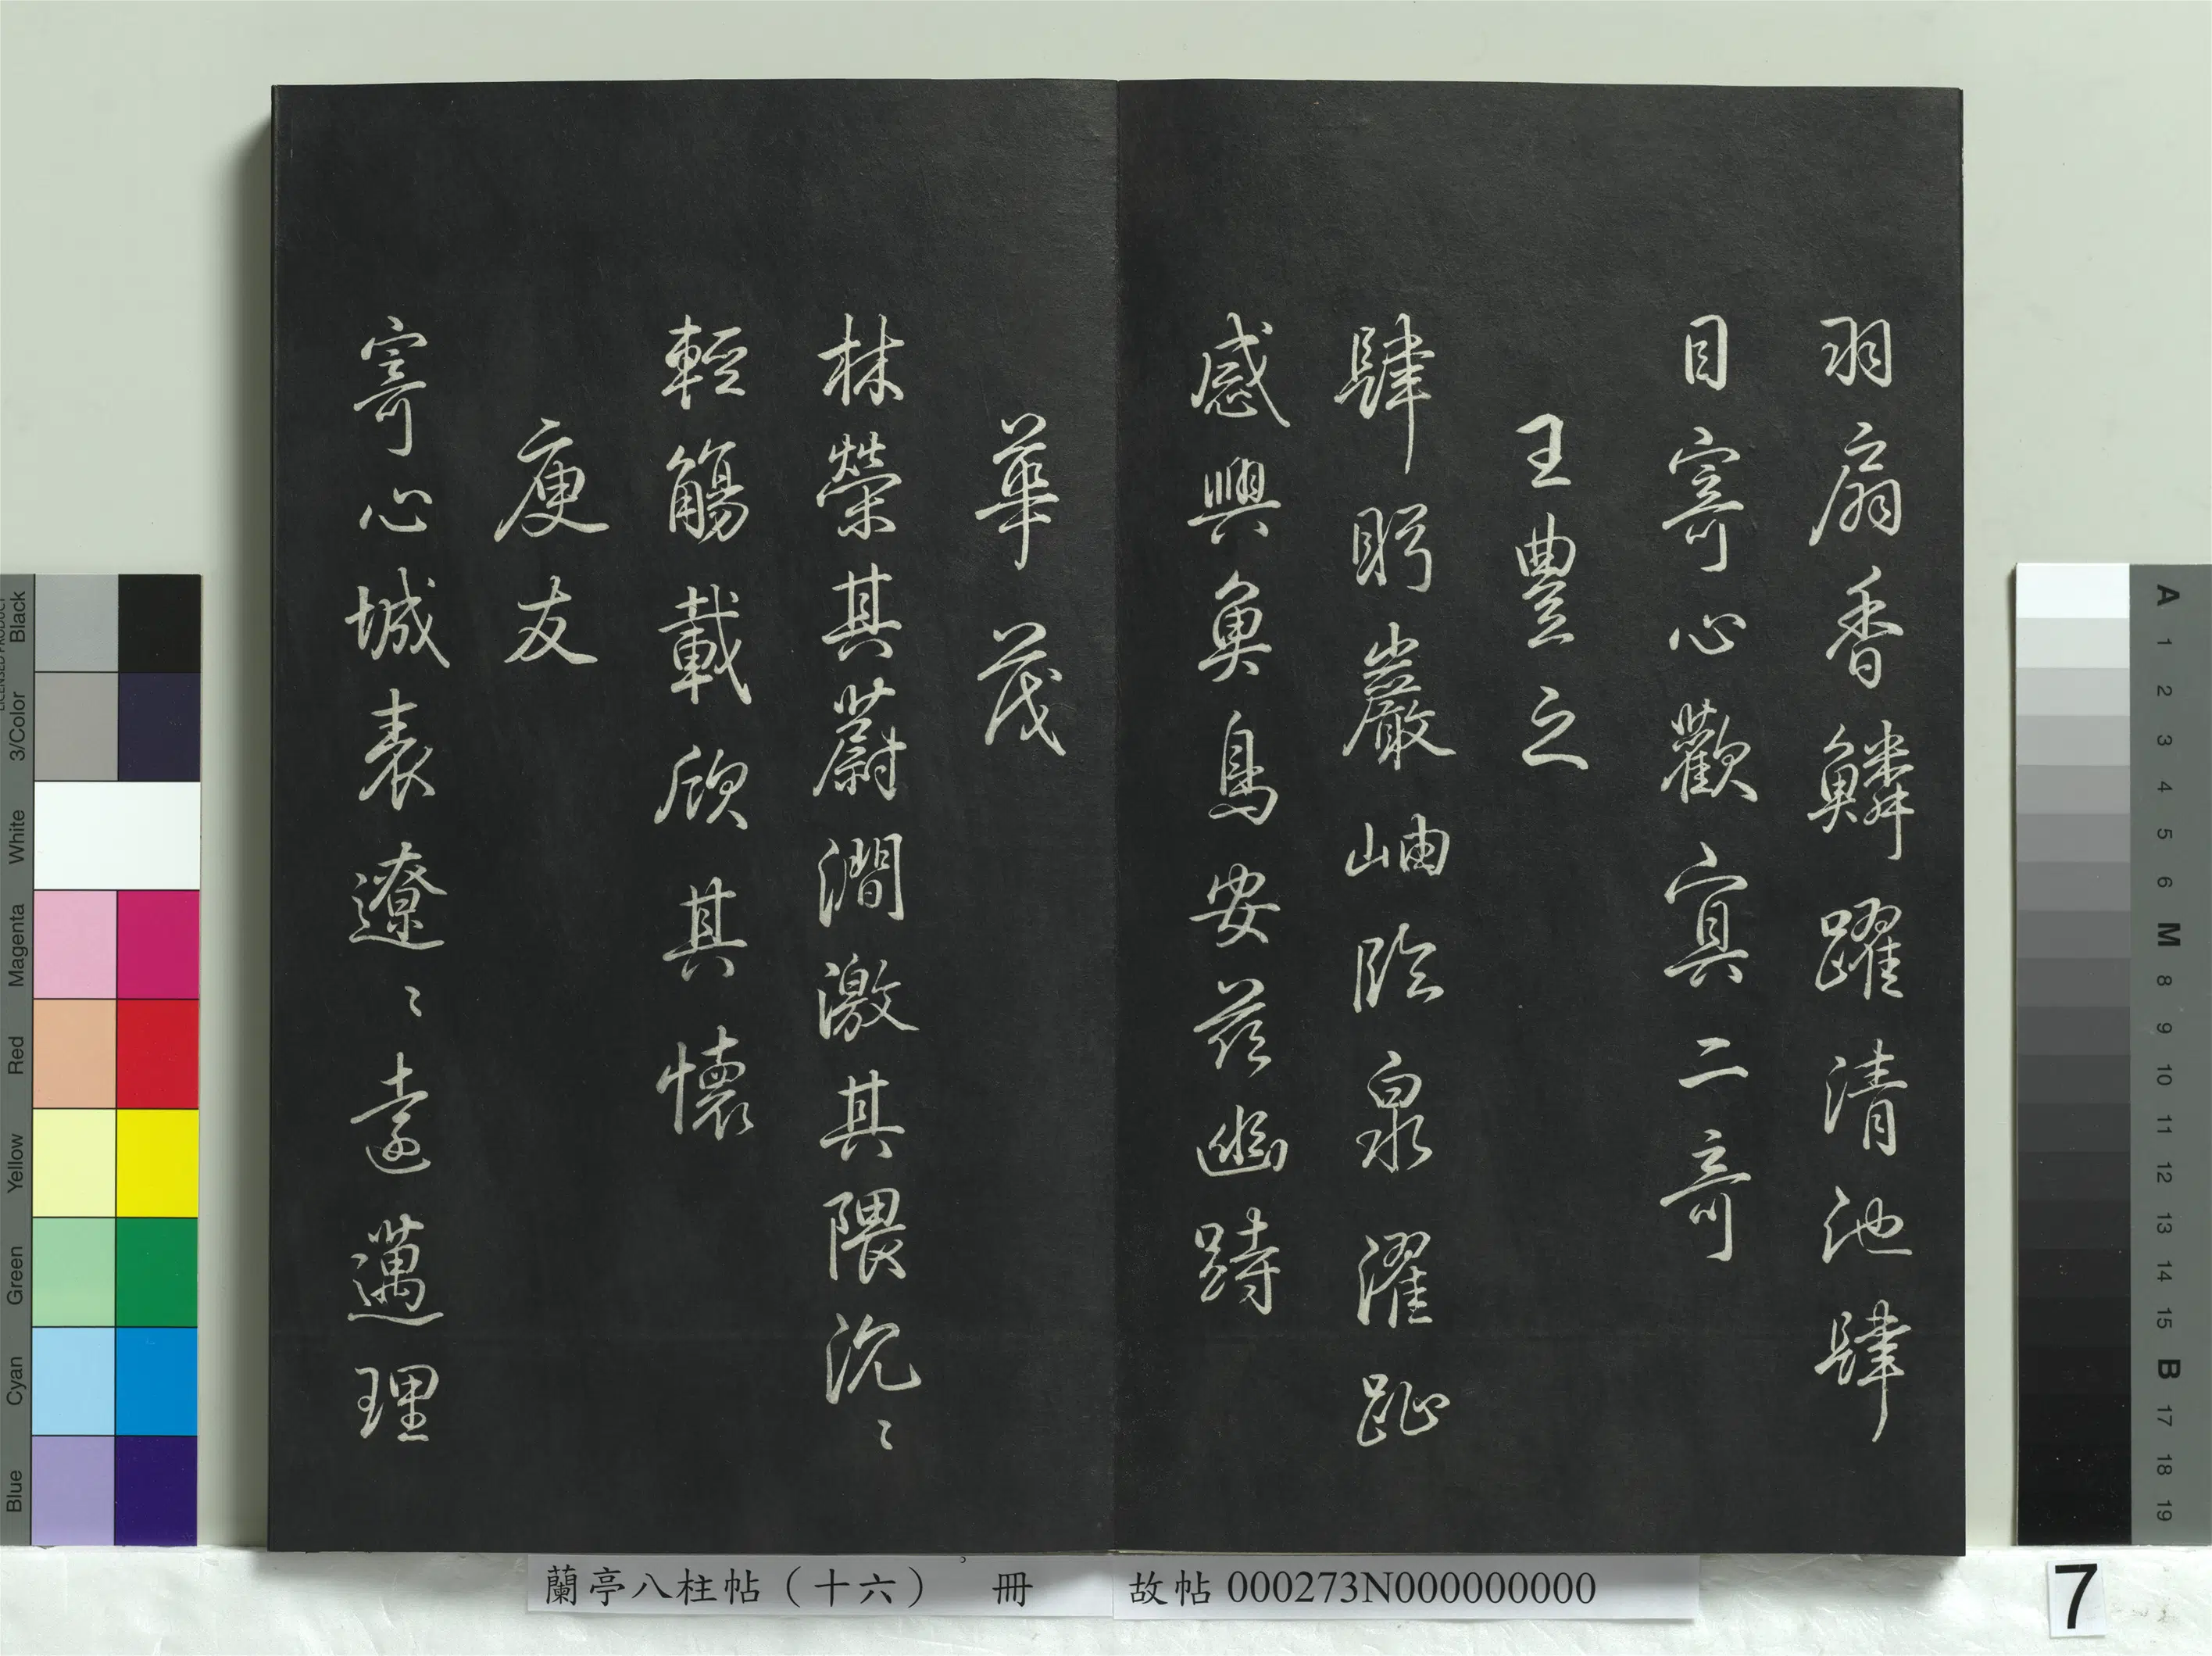 羽扇香鱗躍清池肆
目寄心歡寘二奇
王豊之
肆眄巖岫臨泉濯趾
感興魚鳥安茲幽跱
華茂
林榮其蔚澗激其隈沉〻
輕觴載欣其懷
庾友
寄心城表遼〻遠邁理
蘭亭八柱帖(十六) 冊
故帖000273N000000000
7
Black
3/Color
White
Magenta
Red
Yellow
Green
Cyan
Blue
A
1
2
3
4
5
6
M
8
9
10
11
12
13
14
15
B
17
18
19